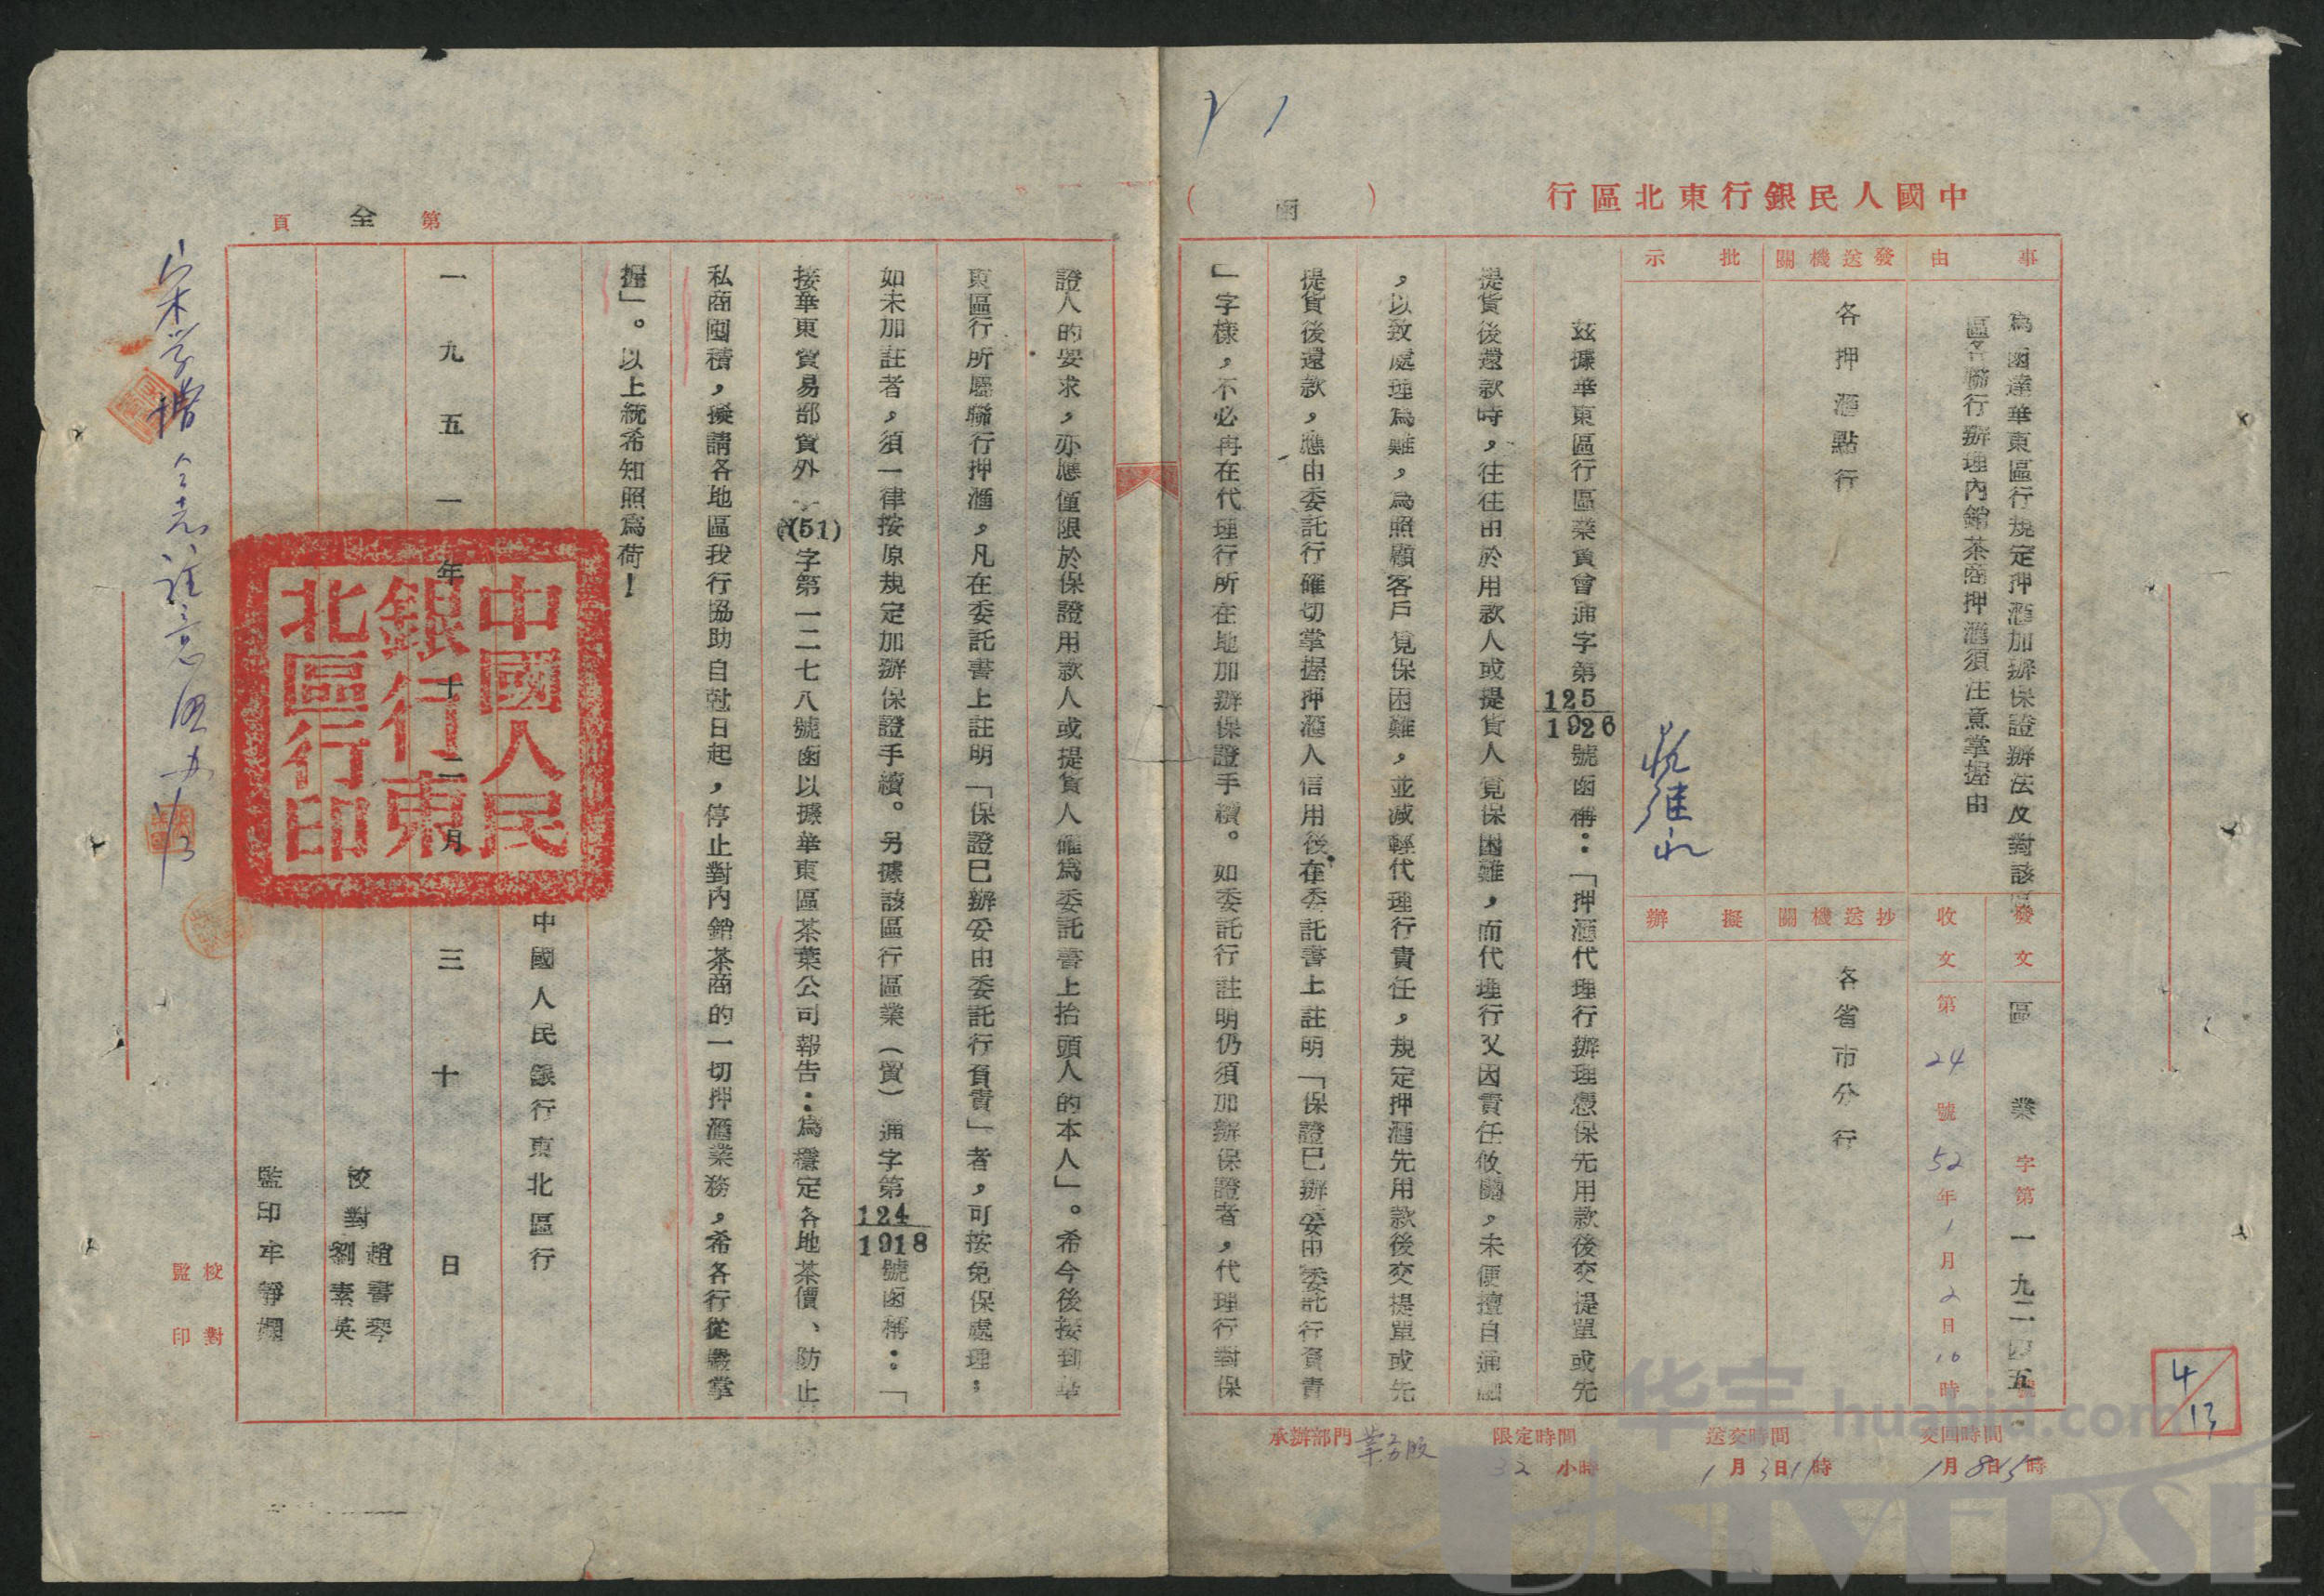 中國人民銀行東北區行
（函）
事由
為函達華東區行規定押滙加辦保證辦法及對該區
區各聯行辦理內銷茶商押滙須注意掌握由
發送機關
各押滙點行
批示
發文
區業字第一九二四五號
收文
第24號
52年1月2日10時
抄送機關
各省市分行
擬辦
茲據華東區行區業貨會通字第125/1926號函稱：「押滙代理行辦理憑保先用款後交提單或先
提貨後還款時，往往由於用款人或提貨人覓保困難，而代理行又因責任攸關，未便擅自通融
，以致處理為難，為照顧客戶覓保困難，並減輕代理行責任，規定押滙先用款後交提單或先
提貨後還款，應由委託行確切掌握押滙人信用後在委託書上註明「保證已辦妥由委託行負責
」字樣，不必再在代理行所在地加辦保證手續。如委託行註明仍須加辦保證者，代理行對保
證人的要求，亦應僅限於保證用款人或提貨人確為委託書上抬頭人的本人」。希今後接到華
東區行所屬聯行押滙，凡在委託書上註明「保證已辦妥由委託行負責」者，可按免保處理；
如未加註者，須一律按原規定加辦保證手續。另據該區行區業（貿）通字第124/1918號函稱：「
接華東貿易部貿外(51)字第一二七八號函以據華東區茶葉公司報告：為穩定各地茶價、防止
私商囤積，擬請各地區我行協助自尅日起，停止對內銷茶商的一切押滙業務，希各行從嚴掌
握」。以上統希知照為荷！
中國人民銀行東北區行
一九五一年十二月三十日
校對 趙書琴
劉素英
監印 牟靜嫻
中國人民
銀行東
北區行印
第全頁
校對
監印
承辦部門 業務股
限定時間
32小時
送交時間
1月3日11時
交回時間
1月8日15時
4/13
华宇 huabid.com
UNIVERSE